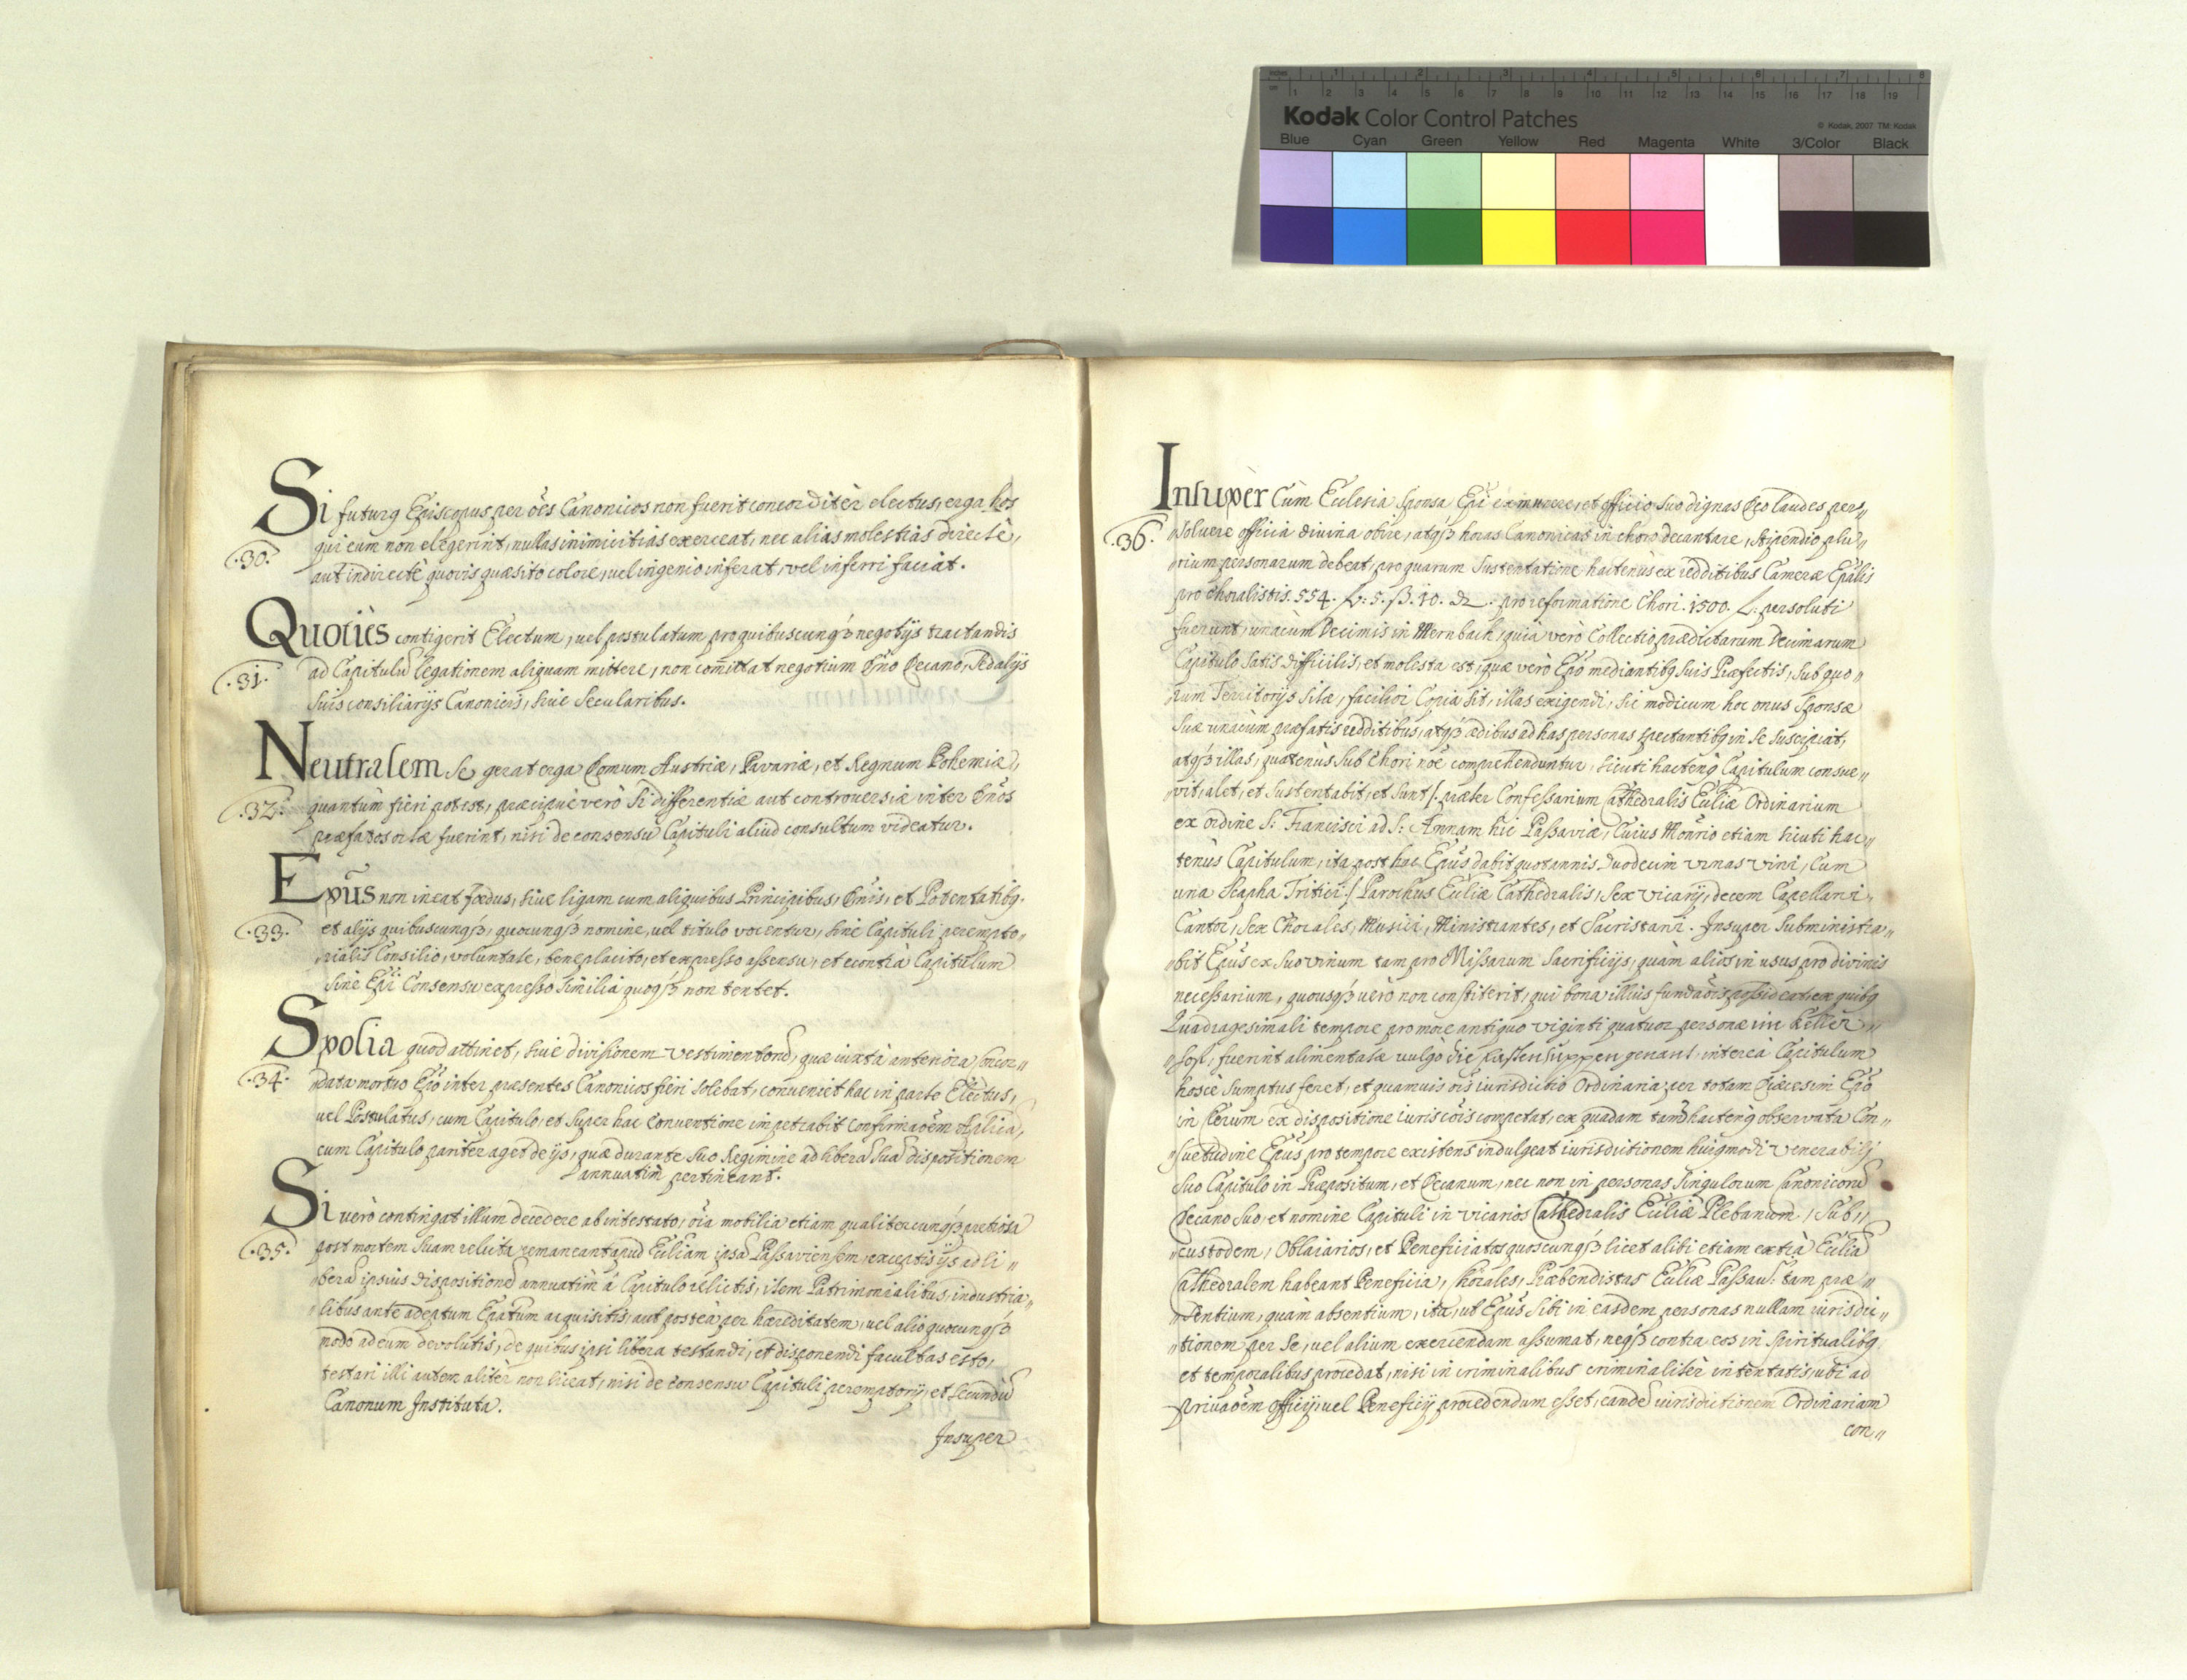 inches 1 2 3 4 5 6 7 8
cm 1 2 3 4 5 6 7 8 9 10 11 12 13 14 15 16 17 18 19
Kodak Color Control Patches © Kodak, 2007 TM: Kodak
Blue Cyan Green Yellow Red Magenta White 3/Color Black
Si futurꝰ Episcopus per oẽs Canonicos non fuerit concorditèr electus, erga hos
.30. qui eum non elegerint, nullas inimicitias exerceat, nec alias molestias directè,
aut indirectè quovis quæsito colore, uel ingenio inferat, vel inferri faciat.
Quotiès contigerit Electum, uel postulatum pro quibuscunqȝ negotÿs tractandis
.31. ad Capitulũ legationem aliquam mittere, non com̃ittat negotium Dño Decano, sed alÿs
Suis consiliarÿs Canonicis, siue Secularibus.
Neutralem se gerat erga Domum Austriæ, Bavariæ, et Regnum Bohemiæ,
.32. quantùm fieri potest, præcipuè verò Si differentiæ aut controuersiæ inter Dños
præfatos ortæ fuerint, nisi de consensu Capituli aliud consultum videatur.
Epũs non ineat fœdus, siue ligam cum aliquibus Principibus, Dñis, et Potentatibꝰ.
.33. et alÿs quibuscunqȝ, quocunqȝ nomine, uel titulo vocentur, sine Capituli perempto„
„rialis Consilio, voluntate, beneplacito, et expresso assensu, et econtrà Capitulum
sine Epĩ Consensu expresso Similia quoqȝ non tentet.
Spolia quod attinet, siue divisionem vestimentorũ, quæ iuxtà anteriora
.34. data mortuo Epõ inter præsentes Canonicos fieri solebat, conveniet hac in parte Electus,
uel Postulatus, cum Capitulo, et super hac Conventione impetrabit confirmaõem
cum Capitulo pariter aget de ijs, quæ durante suo Regimine ad liberã suã dispositionem
annuatim pertineant.
Si verò contingat illum decedere ab intestato, oĩa mobilia etiam qualitercunqȝ pretiosa
.35. post mortem suam relicta remaneant apud Ecclĩam ipsã Passaviensem, exceptis ijs ad li„
„berã ipsius dispositionẽ annuatìm à Capitulo relictis, item Patrimonialibus, industria„
„libus ante adeptum Epãtum acquisitis, aut posteà per hæreditatem, uel alio quocunqȝ
modo ad eum devolutis, de quibus ipsi libera testandi, et disponendi facultas esto,
testari illi autem alitèr non liceat, nisi de consensu Capituli peremptorÿ, et secundũ
Canonum Instituta.
Insuper
Insuper Cùm Ecclesia Sponsa Epĩ ex munere, et officio suo dignas Deo laudes per„
.36. „soluere officia divina obire, atqȝ horas Canonicas in choro decantare, stipendio plu„
„rium personarum debeat, pro quarum Sustentatione hactenùs ex redditibus Cameræ Epãlis
pro choralistis. 554. fl. 5. ß. 10. pro reformatione Chori. 1500. fl. persoluti
fuerunt, unàcum Decimis in Mernbach, quia verò Collectio prædictarum Decimarum
Capitulo satis difficilis, et molesta est, quæ verò Epõ mediantibꝰ suis Præfectis, sub quo„
„rum Territorÿs sitæ, facilior Copia sit, illas exigendi, sic modicum hoc onus Sponsæ
Suæ unàcum præfatis redditibus, atqȝ ædibus ad has personas spectantibꝰ in se suscipiat,
atqȝ illas, quatenùs sub Chori nõe comprehenduntur, sicuti hactenꝰ Capitulum consue„
„vit, alet, et sustentabit, et sunt /: præter Confessarium Cathedralis Ecclĩæ Ordinarium
ex ordine S: Francisci ad S: Annam hic Passaviæ, Cuius Monrio etiam sicuti hac„
tenùs Capitulum, ita post hac Epũs dabit quotannis duodecim urnas vini, Cum
una Scapha Tritici :/ Parochus Ecclĩæ Cathedralis, Sex vicarÿ, decem Capellani,
Cantor, Sex Chorales, Musici, Ministrantes, et Sacristani. Insuper Subministra„
„bit Epũs ex suo vinum tam pro Missarum Sacrificÿs, quàm alios in usus pro divinis
necessarium, quousqȝ verò non constiterit, qui bona illius fundaõis possideat, ex quibꝰ
Quadragesimali tempore pro more antiquo viginti quatuor personæ im Keller„
„ fuerint alimentatæ vulgò die Fastensuppen genant, intereà Capitulum
hosce sumptus feret, et quamuis oĩs iurisdictio Ordinaria per totam Diæcesin Epõ
in Clerum ex dispositione iuris cõis competat, ex quadam tamẽ hactenꝰ observata Con„
„suetudine Epũs pro tempore existens indulgeat iurisdictionem huiꝰmodi Venerabili
suo Capitulo in Præpositum, et Decanum, nec non in personas Singulorum Canonicorũ
Decano suo, et nomine Capituli in vicarios Cathedralis Ecclĩæ Plebanum, Sub„
„custodem, Oblaiarios, et Beneficiatos quoscunqȝ licet alibi etiam extrà Ecclĩã
Cathedralem habeant Beneficia, Chorales, Præbendistas Ecclĩæ Passau: tam præ„
„sentium, quàm absentium, ita, ut Epũs sibi in easdem personas nullam iurisdic„
„tionem per se, uel alium exercendam assumat, neqȝ contra eos in spiritualibꝰ
et temporalibus procedat, nisi in criminalibus criminalitèr intentatis, ubi ad
privaõem officÿ, uel Beneficÿ procedendum esset, eandẽ iurisdictionem Ordinariam
con„